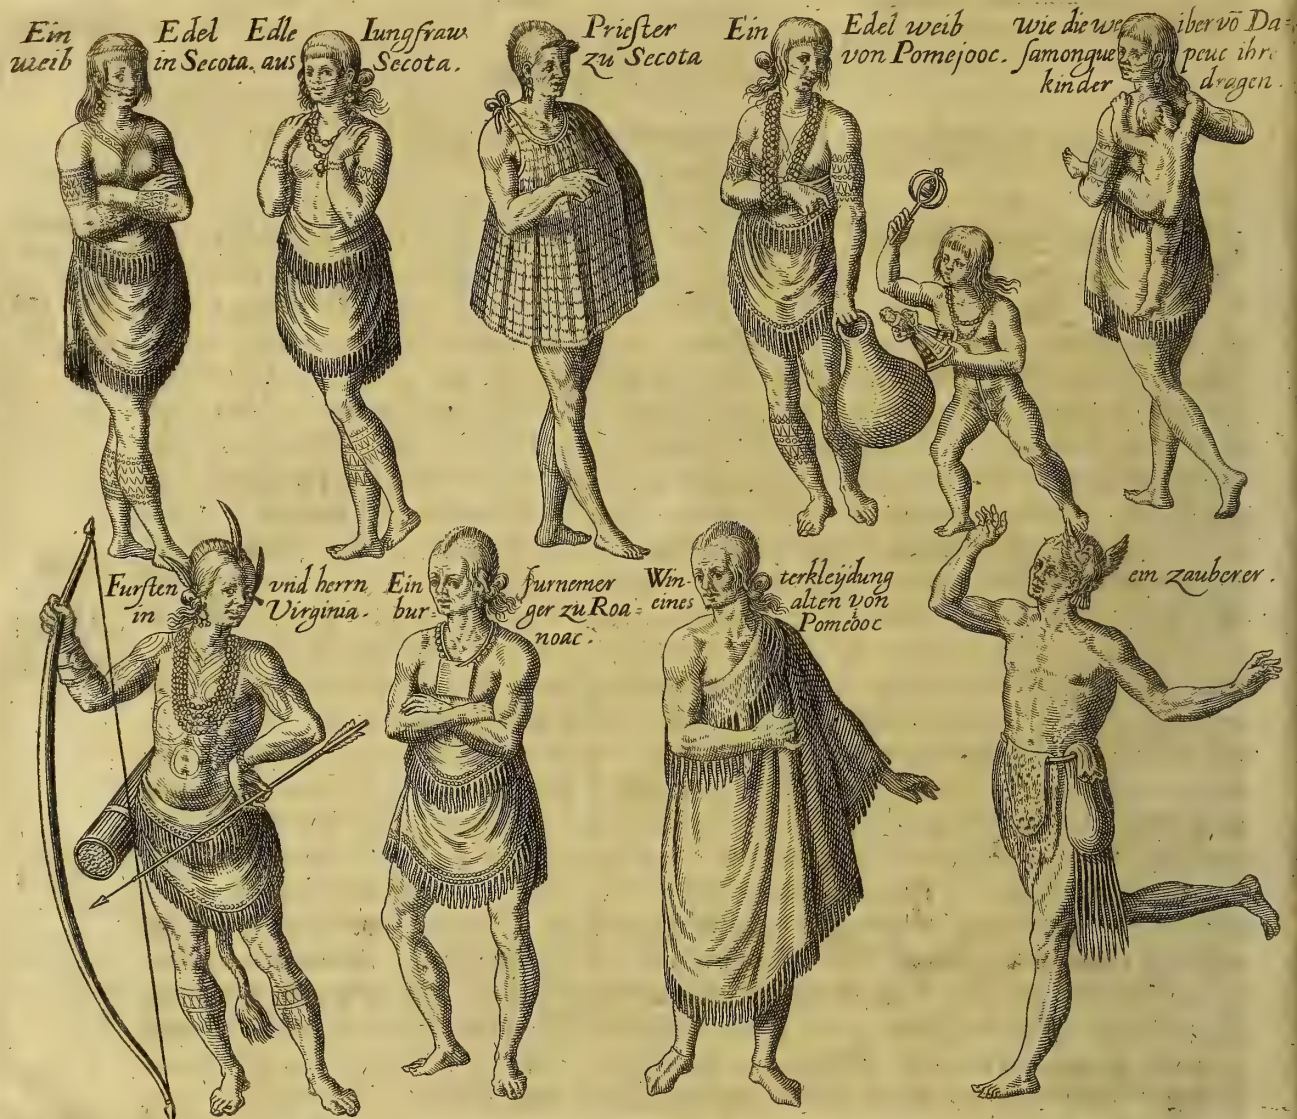 Ein Edel
weib in Secota.
Edle Iungfraw
aus Secota.
Priester
zu Secota
Ein Edel weib
von Pomejooc.
wie die weiber võ Da=
samongue peuc ihre
kinder dragen.
Fursten vnd herrn
in Virginia.
Ein furnemer
bur ger zu Roa=
noac.
Win= terkleÿdung
eines alten von
Pomeooc
ein zauberer.